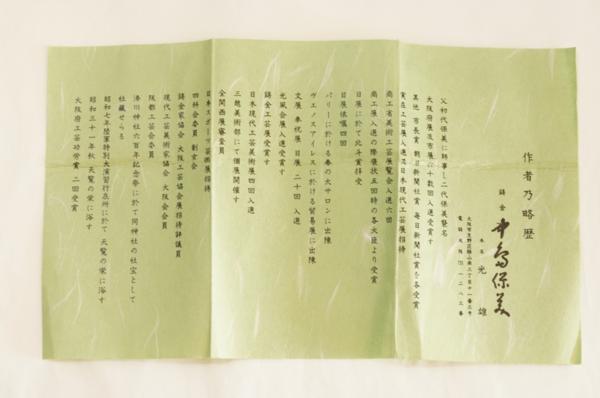 作者乃略歴
鋳金 中島保美
本名 光雄
父初代保美に師事し二代保美襲名
大阪府展及市展に十数回入選受賞す
其他 市長賞 朝日新聞社賞 毎日新聞社賞を各受賞
実在工芸展入選及日本現代工芸展招待
商工省美術工芸展覧会入選六回
商工展入選の際褒状五回時の各大臣より受賞
日展に於て北斗賞拝受
日展依嘱四回
パリーに於ける春の大サロンに出陳
ヴエノスアイレスに於ける貿易展に出陳
文展 奉祝展 日展 二十回 入選
光風会展入選受賞す
鋳金工芸展受賞す
日本現代工芸美術展四回入選
三越美術部にて個展開催す
全関西展審査員
日本スポーツ芸術展招待
四科会委員 創玄会
鋳金家協会 大阪工芸協会展招待評議員
現代工芸美術家協会 大阪会会員
阪都工芸会委員
湊川神社六百年記念祭に於て同神社の社宝として
社蔵せらる
昭和七年陸軍特別大演習行在所に於て 天覧の栄に浴す
昭和三十一年秋 天覧の栄に浴す
大阪府工芸功労賞 二回受賞